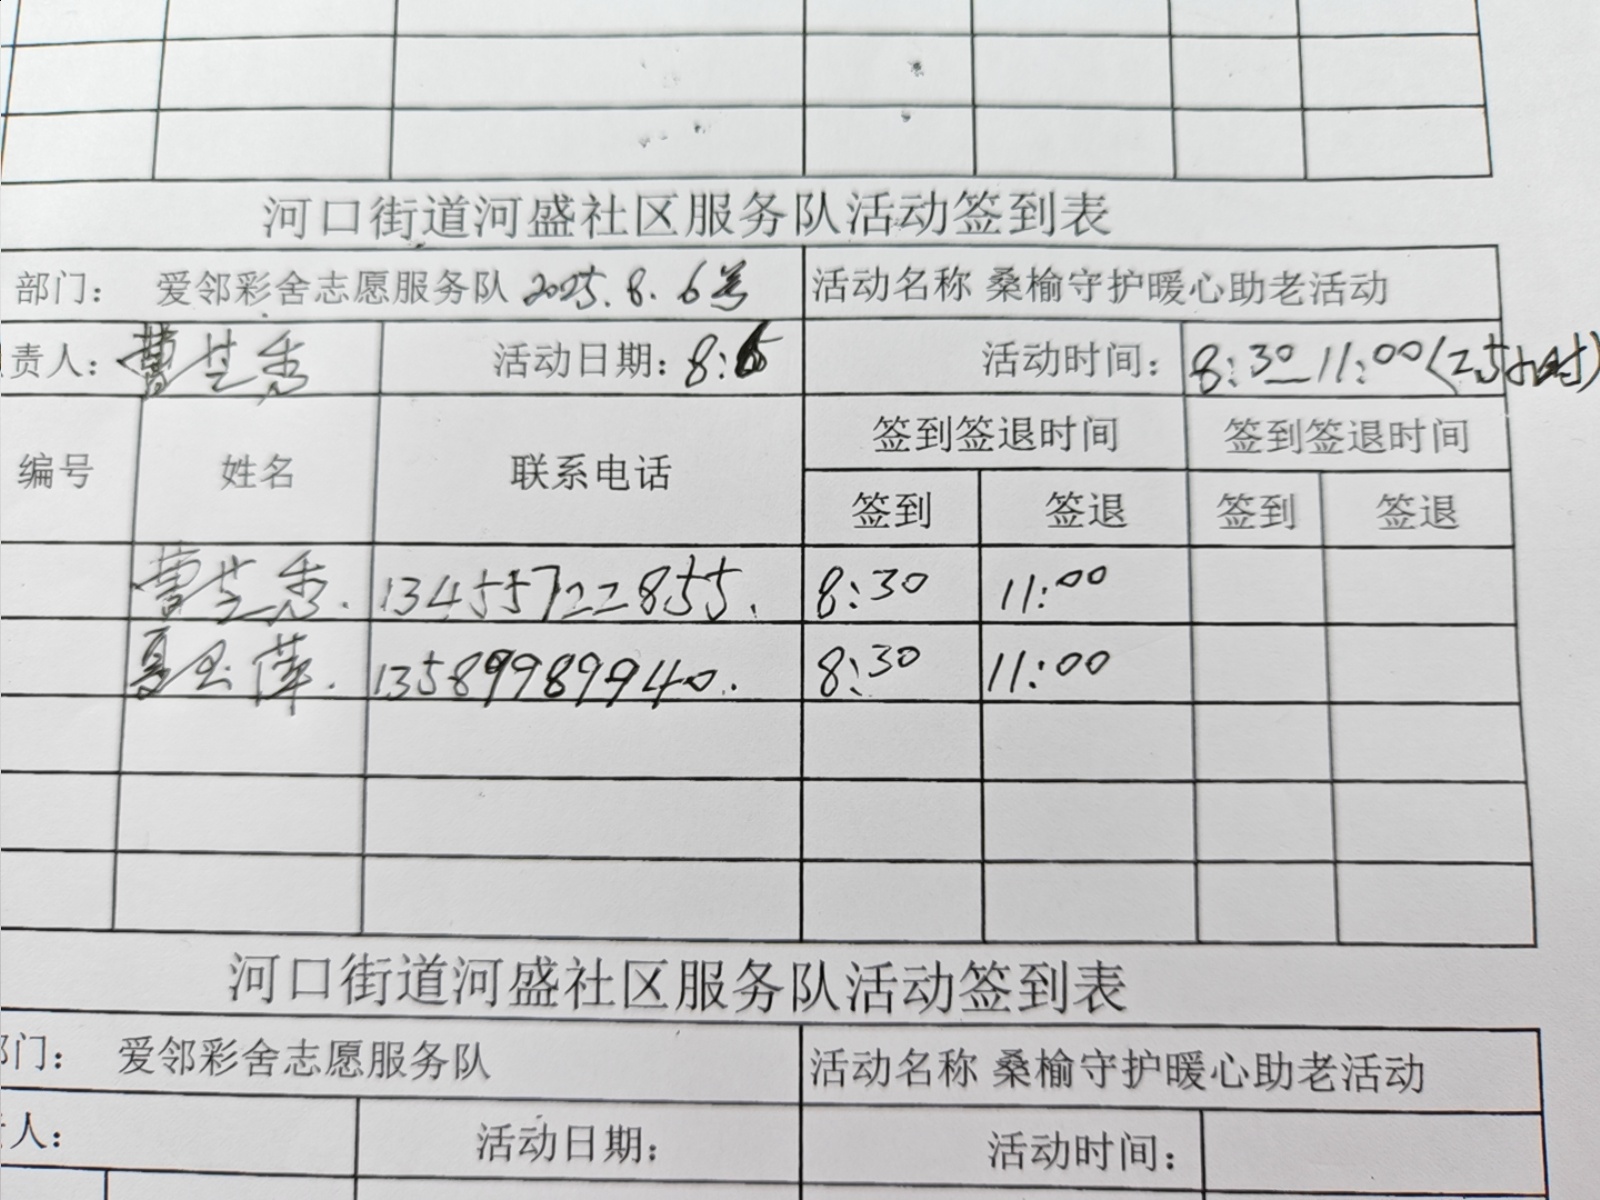 河口街道河盛社区服务队活动签到表
部门： 爱邻彩舍志愿服务队 2025.8.6号 活动名称 桑榆守护暖心助老活动
责人：曹芝秀 活动日期：8:6 活动时间：8:30—11:00(2.5小时)
编号 姓名 联系电话 签到签退时间 签到签退时间
签到 签退 签到 签退
曹芝秀. 13455722855. 8:30 11:00
夏玉萍. 13589989940. 8:30 11:00
河口街道河盛社区服务队活动签到表
部门： 爱邻彩舍志愿服务队 活动名称 桑榆守护暖心助老活动
责人： 活动日期： 活动时间：